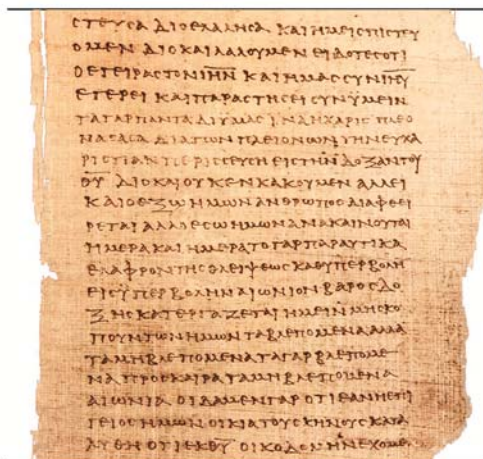 ϹΤΕΥϹΑ ΔΙΟ ΕΛΑΛΗϹΑ ΚΑΙ ΗΜΕΙϹ ΠΙϹΤΕΥ
ΟΜΕΝ ΔΙΟ ΚΑΙ ΛΑΛΟΥΜΕΝ ΕΙΔΟΤΕϹ ΟΤΙ
Ο ΕΓΕΙΡΑϹ ΤΟΝ Ι̅Η̅Ν̅ ΚΑΙ ΗΜΑϹ ϹΥΝ Ι̅Η̅Υ̅
ΕΓΕΡΕΙ ΚΑΙ ΠΑΡΑϹΤΗϹΕΙ ϹΥΝ Ϋ́ΜΕΙΝ
ΤΑ ΓΑΡ ΠΑΝΤΑ ΔΙ ΥΜΑϹ ΙΝΑ Η ΧΑΡΙϹ ΠΛΕΟ
ΝΑϹΑϹΑ ΔΙΑ ΤΩΝ ΠΛΕΙΟΝΩΝ ΤΗΝ ΕΥΧΑ
ΡΙϹΤΙΑΝ ΠΕΡΙϹϹΕΥϹΗ ΕΙϹ ΤΗΝ ΔΟΞΑΝ ΤΟΥ
Θ̅Υ̅ ΔΙΟ ΚΑΙ ΟΥΚ ΕΝΚΑΚΟΥΜΕΝ ΑΛΛ ΕΙ
ΚΑΙ Ο ΕΞΩ ΗΜΩΝ ΑΝΘΡΩΠΟϹ ΔΙΑΦΘΕΙ
ΡΕΤΑΙ ΑΛΛ Ο ΕϹΩ ΗΜΩΝ ΑΝΑΚΑΙΝΟΥΤΑΙ
ΗΜΕΡΑ ΚΑΙ ΗΜΕΡΑ ΤΟ ΓΑΡ ΠΑΡΑΥΤΙΚΑ
ΕΛΑΦΡΟΝ ΤΗϹ ΘΛΕΙΨΕΩϹ ΚΑΘ ΥΠΕΡΒΟΛΗ
ΕΙϹ ΥΠΕΡΒΟΛΗΝ ΑΙΩΝΙΟΝ ΒΑΡΟϹ ΔΟ
ΞΗϹ ΚΑΤΕΡΓΑΖΕΤΑΙ ΗΜΕΙΝ ΜΗ ϹΚΟ
ΠΟΥΝΤΩΝ ΗΜΩΝ ΤΑ ΒΛΕΠΟΜΕΝΑ ΑΛΛΑ
ΤΑ ΜΗ ΒΛΕΠΟΜΕΝΑ ΤΑ ΓΑΡ ΒΛΕΠΟΜΕ
ΝΑ ΠΡΟϹΚΑΙΡΑ ΤΑ ΜΗ ΒΛΕΠΟΜΕΝΑ
ΑΙΩΝΙΑ ΟΙΔΑΜΕΝ ΓΑΡ ΟΤΙ ΕΑΝ Η ΕΠΙ
ΓΕΙΟϹ ΗΜΩΝ ΟΙΚΙΑ ΤΟΥ ϹΚΗΝΟΥϹ ΚΑΤΑ
ΛΥΘΗ ΟΤΙ ΕΚ Θ̅Υ̅ ΟΙΚΟΔΟΜΗΝ ΕΧΟΜΕ